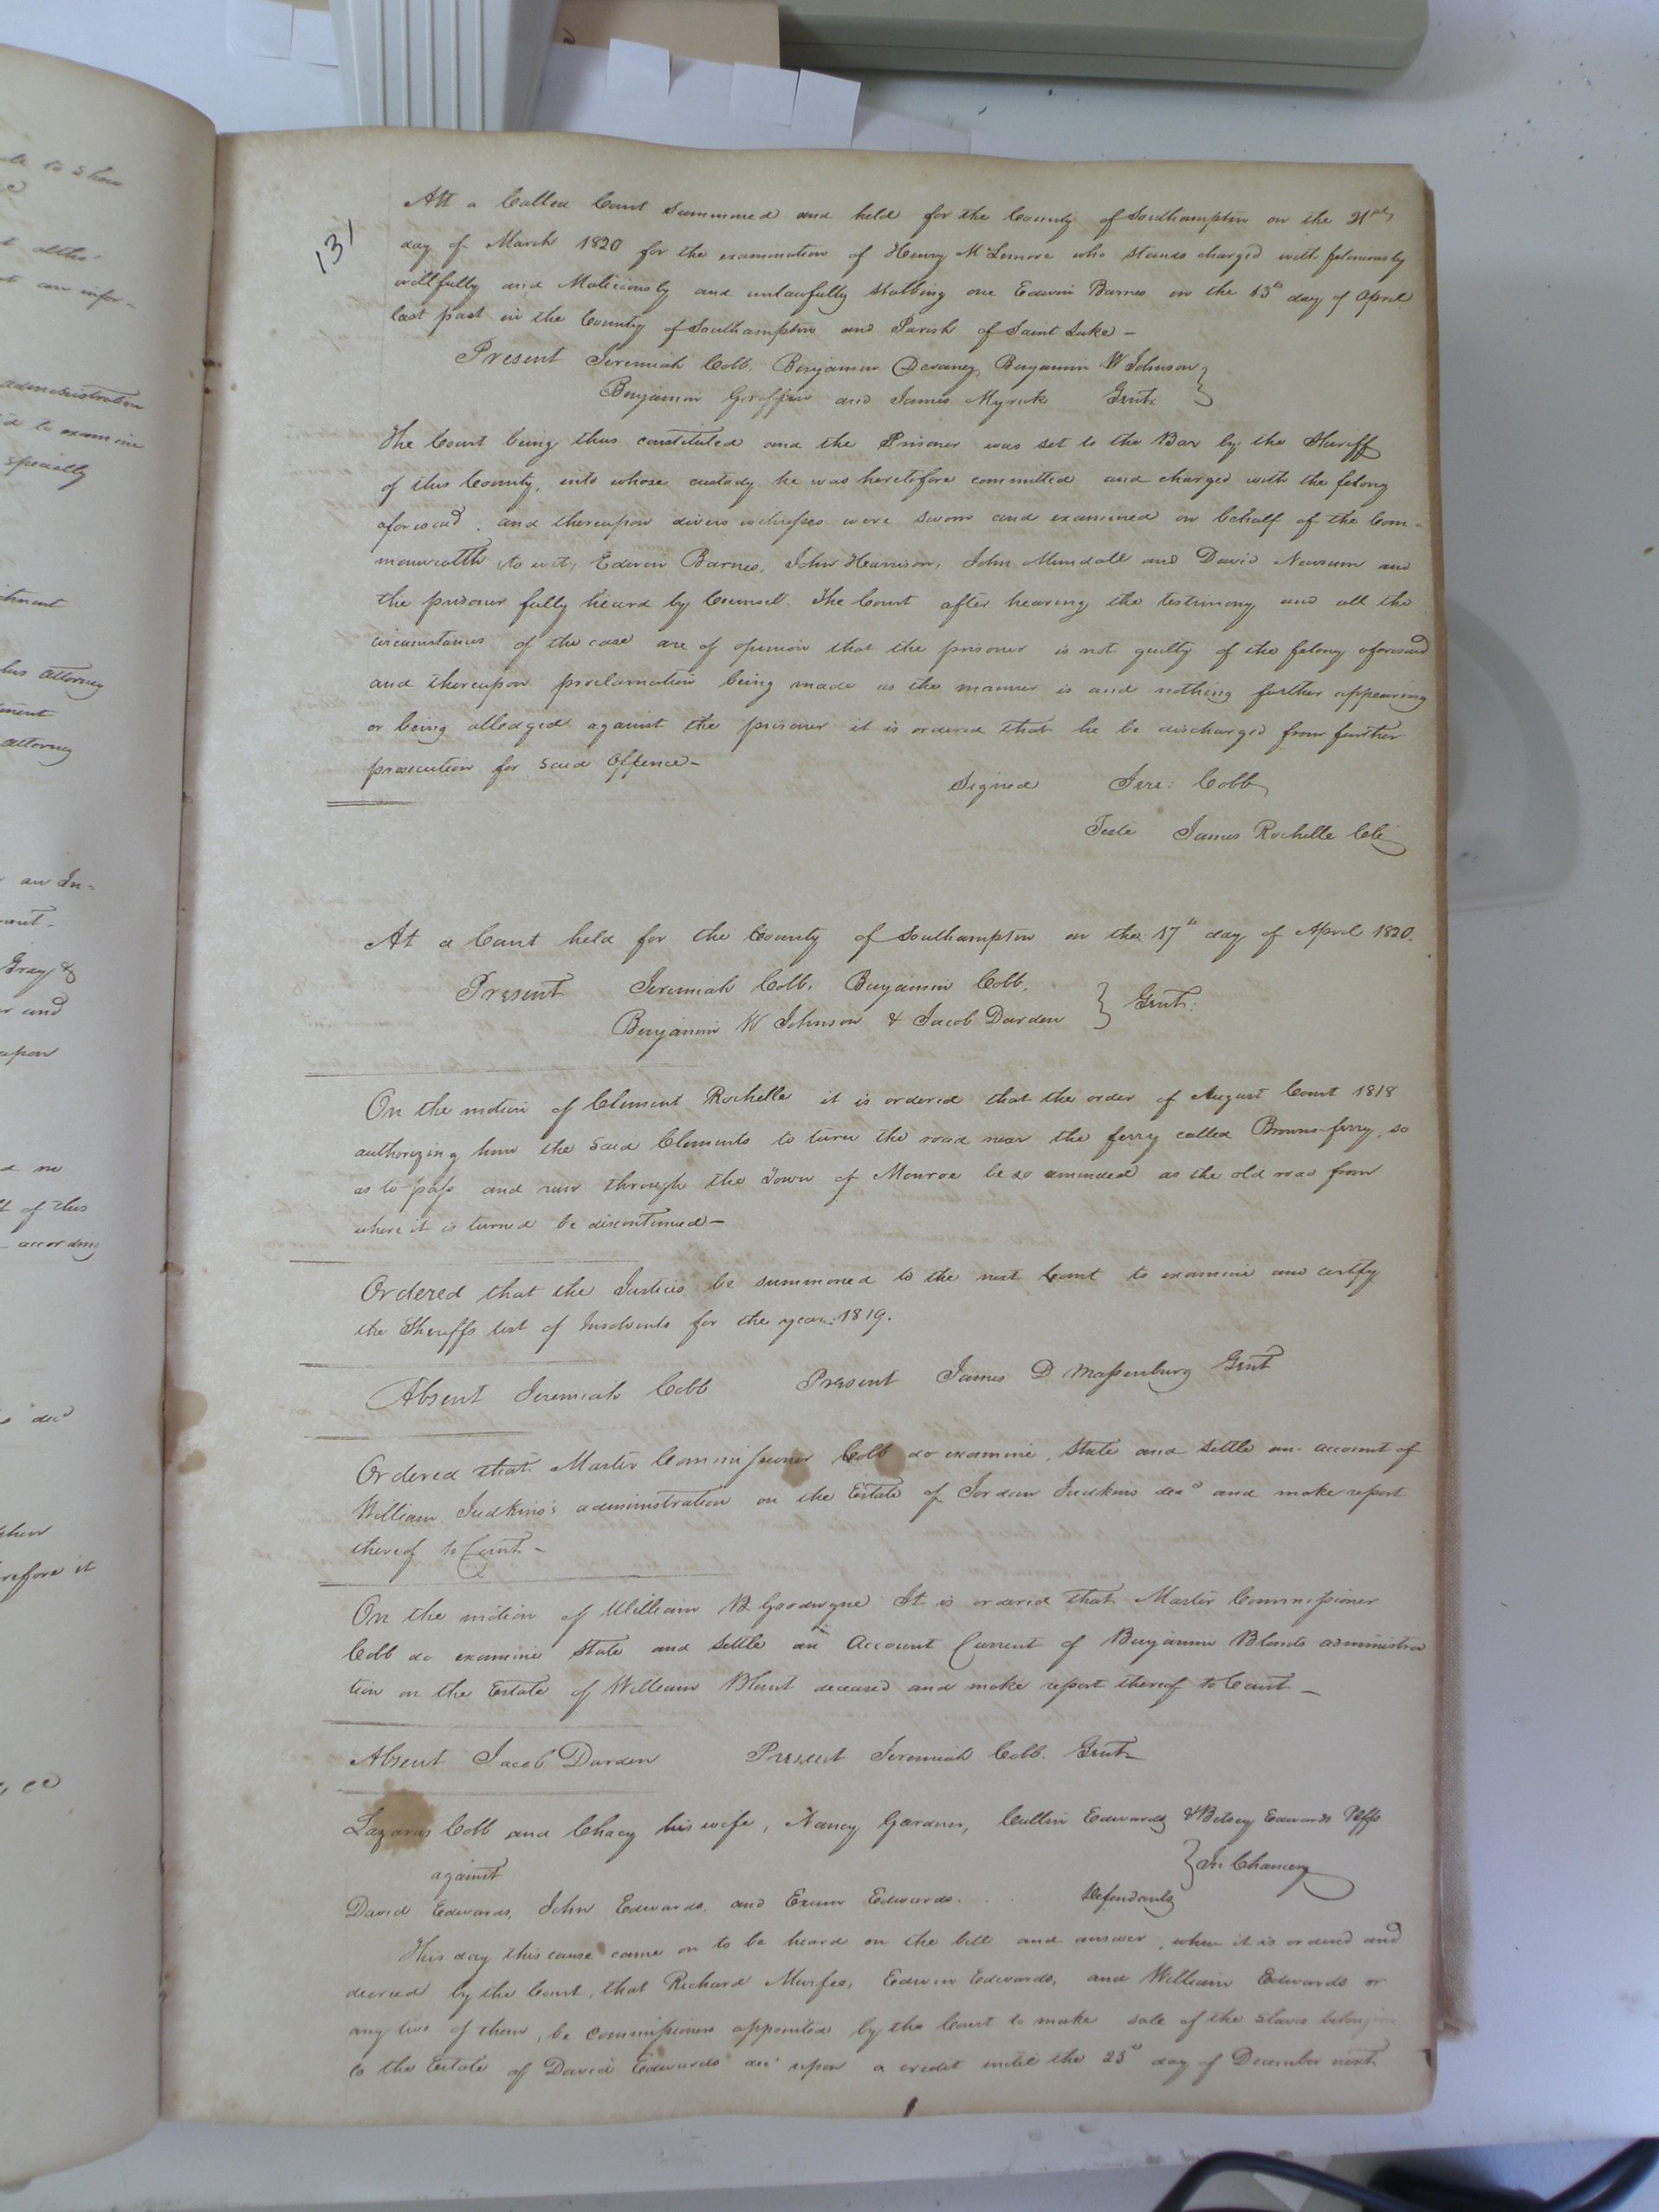 131
Att a Called Court Summoned and held for the County of Southampton on the 21st
day of March 1820 for the examination of Henry McLemore who stands charged with feloniously
willfully and Maliciously and unlawfully Stabbing one Edwin Barnes on the 13th day of April
last past in the County of Southampton and Parish of Saint Luke -
Present Jeremiah Cobb, Benjamin Devaney, Benjamin W Johnson
Benjamin Griffin and James Myrick Gent.
The Court being thus constituted and the Prisoner was set to the Bar by the Sheriff
of this County, into whose custody he was heretofore committed and charged with the felony
aforesaid, and thereupon divers witnesses were sworn and examined on behalf of the Com-
monwealth, to wit, Edwin Barnes, John Harrison, John Mundall and David Newsum and
the prisoner fully heard by Counsel. The Court after hearing the testimony and all the
circumstances of the case are of opinion that the prisoner is not guilty of the felony aforesaid
and thereupon proclamation being made as the manner is and nothing further appearing
or being alledged against the prisoner it is ordered that he be discharged from further
prosecution for said Offence -
Signed Jere: Cobb
Teste James Rochelle Clk
At a Court held for the County of Southampton on the 17th day of April 1820.
Present Jeremiah Cobb, Benjamin Cobb,
Benjamin W Johnson & Jacob Darden Gent:
On the motion of Clement Rochelle it is ordered that the order of August Court 1818
authorizing him the said Clements to turn the road near the ferry called Browns-ferry, so
as to pass and run through the Town of Monroe be so amended as the old road from
where it is turned be discontinued -
Ordered that the Justices be summoned to the next Court to examine and certify
the Sheriffs list of Insolvents for the year 1819.
Absent Jeremiah Cobb Present James D Massenburg Gent
Ordered that Master Commissioner Cobb do examine, State and Settle an account of
William Judkins's administration on the Estate of Jordan Judkins decd and make report
thereof to Court -
On the motion of William B Goodwyne It is ordered that Master Commissioner
Cobb do examine State and Settle an Account Current of Benjamin Blunts administra
tion on the Estate of William Blunt deceased and make report thereof to Court -
Absent Jacob Darden Present Jeremiah Cobb. Gent
Lazarus Cobb and Chacy his wife, Nancy Gardner, Cullin Edwards & Betsey Edwards Plffs
against } In Chancery
David Edwards, John Edwards, and Exum Edwards. . . Defendants
This day this cause came on to be heard on the bill and answer, when it is ordered and
decreed by the Court, that Richard Murfee, Edwin Edwards, and William Edwards or
any two of them, be commissioners appointed by the Court to make sale of the slaves belonging
to the Estate of David Edwards decd upon a credit until the 25th day of December next